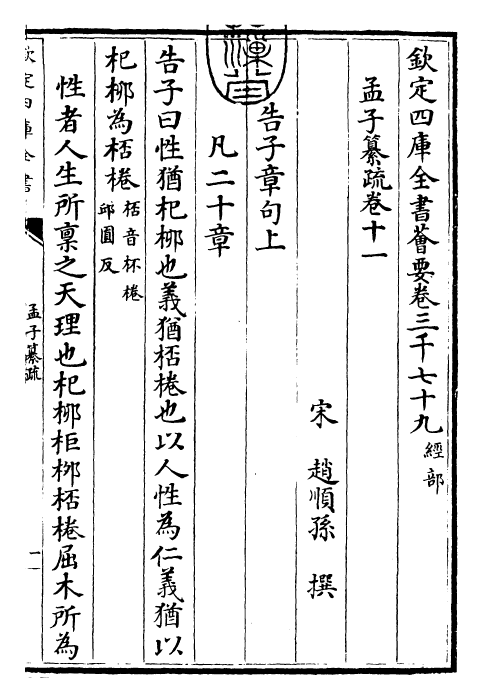 欽定四庫全書薈要卷三千七十九 經部
孟子纂疏卷十一
宋 趙順孫 撰
告子章句上
凡二十章
告子曰性猶杞柳也義猶桮棬也以人性為仁義猶以
杞柳為桮棬 桮音杯棬
邱圓反
性者人生所禀之天理也杞柳柜柳桮棬屈木所為
欽定四庫全書
孟子纂疏
一